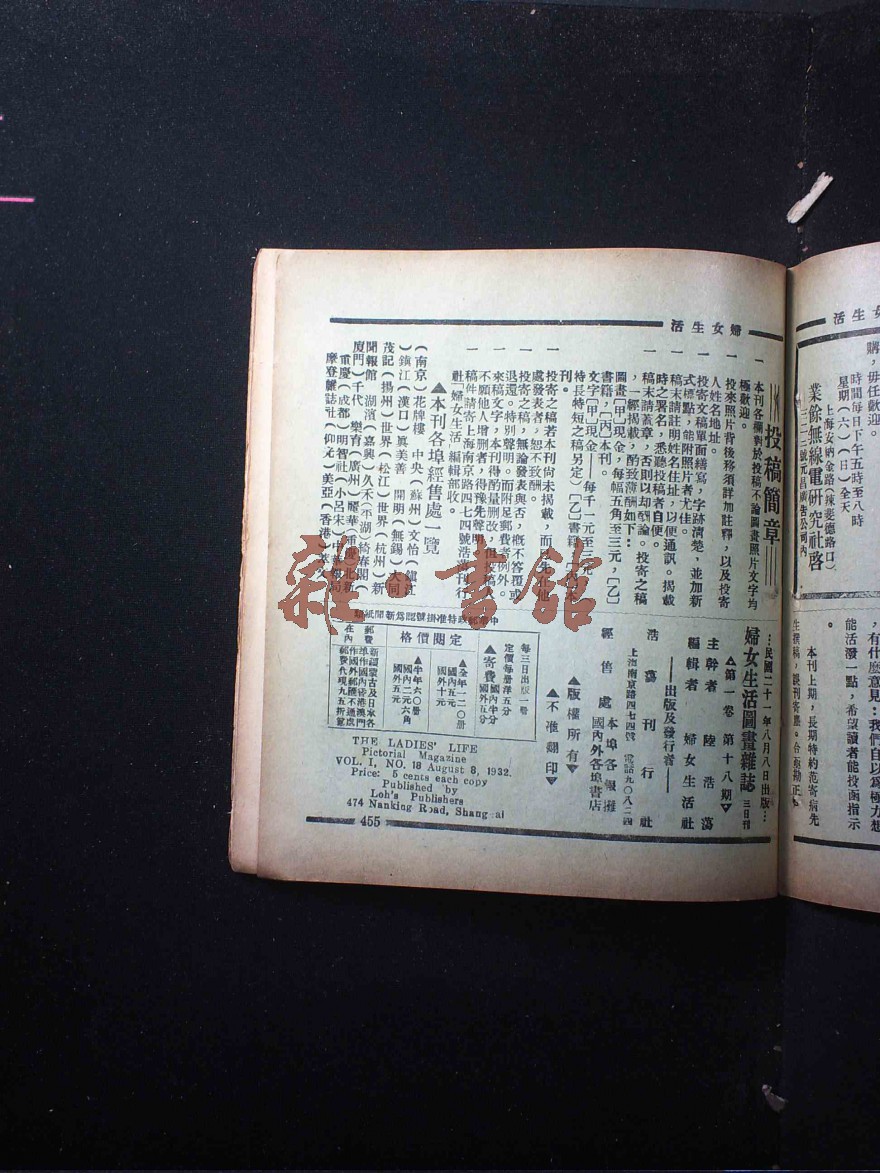 婦女生活
投稿簡章
一 本刊各欄對於投稿不論圖畫照片文字均
極歡迎。
一 投來照片背後務須詳加註釋，以及投寄
人姓名地址。
一 投寄文稿單面繕寫，字跡清楚，並加新
式標點，能附照片者尤佳。
一 稿末請註明姓名住址，以便通訊。揭載
時之署名，悉聽投稿者自便。
一 稿末請蓋章，否則以却酬論。投寄之稿
，一經揭載，酌致薄酬如下：
圖畫【甲】現金，每幅五角至三元，【乙】
書籍，【丙】本刊。
文字【甲】現金——每千一元至三元，（
特長特短之稿另定）【乙】書籍【丙】本
刊。
一 投寄之稿若本刊尚未揭載，而已先在他
處發表者，恕不致酬。
一 投寄之稿，無論發表與否，概不答覆或
退還。特別聲明。而附足郵費者例外。
一 來稿文字，本刊得酌量删改，但投稿人
不願他人增删者，得豫先聲明。
一 稿件請寄上海南京路四七四號浩蕩刊行
社「婦女生活」編輯部收。
▲本刊各埠經售處一覽
（南京）花牌樓 中央（蘇州）文怡（鎮江
）鎮江（漢口）眞美善 開明（無錫）大同
茂記（揚州）世界（松江）世界（杭州）新
聞報館 湖濱（嘉興）久禾（蕪湖）綺春閣（
廈門）千代 樂育（廣州）麗華（重慶）北新
重慶（成都）明智社（小呂宋）中華書局
摩登雜誌社（仰光）美亞（香港）英文
…民國二十一年八月八日出版…
婦女生活圖畫雜誌 三日刊
▲第一卷 第十八期▼
主幹者 陸浩蕩
編輯者 婦女生活社
——出版及發行者——
浩蕩刊行社
上海南京路四七四號 電話九〇八二四
經售處 本埠各報攤
國內外各埠書店
▲版權所有▼
▲不准翻印▼
中華郵政特准掛號認爲新聞紙類
每三日出版一卷
定價每册洋五分
▲寄費 國內半分
國外五分
定閱價格
▲全年一二〇册
國內五元
國外十元
▲半年六〇册
國內二元六角
國外五元
郵費在內
新疆蒙古及日本各
準作國內香港澳門
作國外郵匯不通處
郵費代現九五折算
THE LADIES' LIFE
Pictorial Magazine
VOL. I, NO. 18 August 8, 1932.
Price: 5 cents each copy
Published by
Loh's Publishers
474 Nanking Road, Shang ai
455
女生活
購，毋任歡迎。
時間每日下午五時至八時
星期（六）（日）全天
上海安納金路（辣斐德路口）
三二二號元昌廣告公司內
業餘無線電研究社啓
，有什麼意見：我們自以爲極力想
能活潑一點，希望讀者能投函指示
。
本刊上期，長期特約范寄病先
生撰稿，
雜·書館